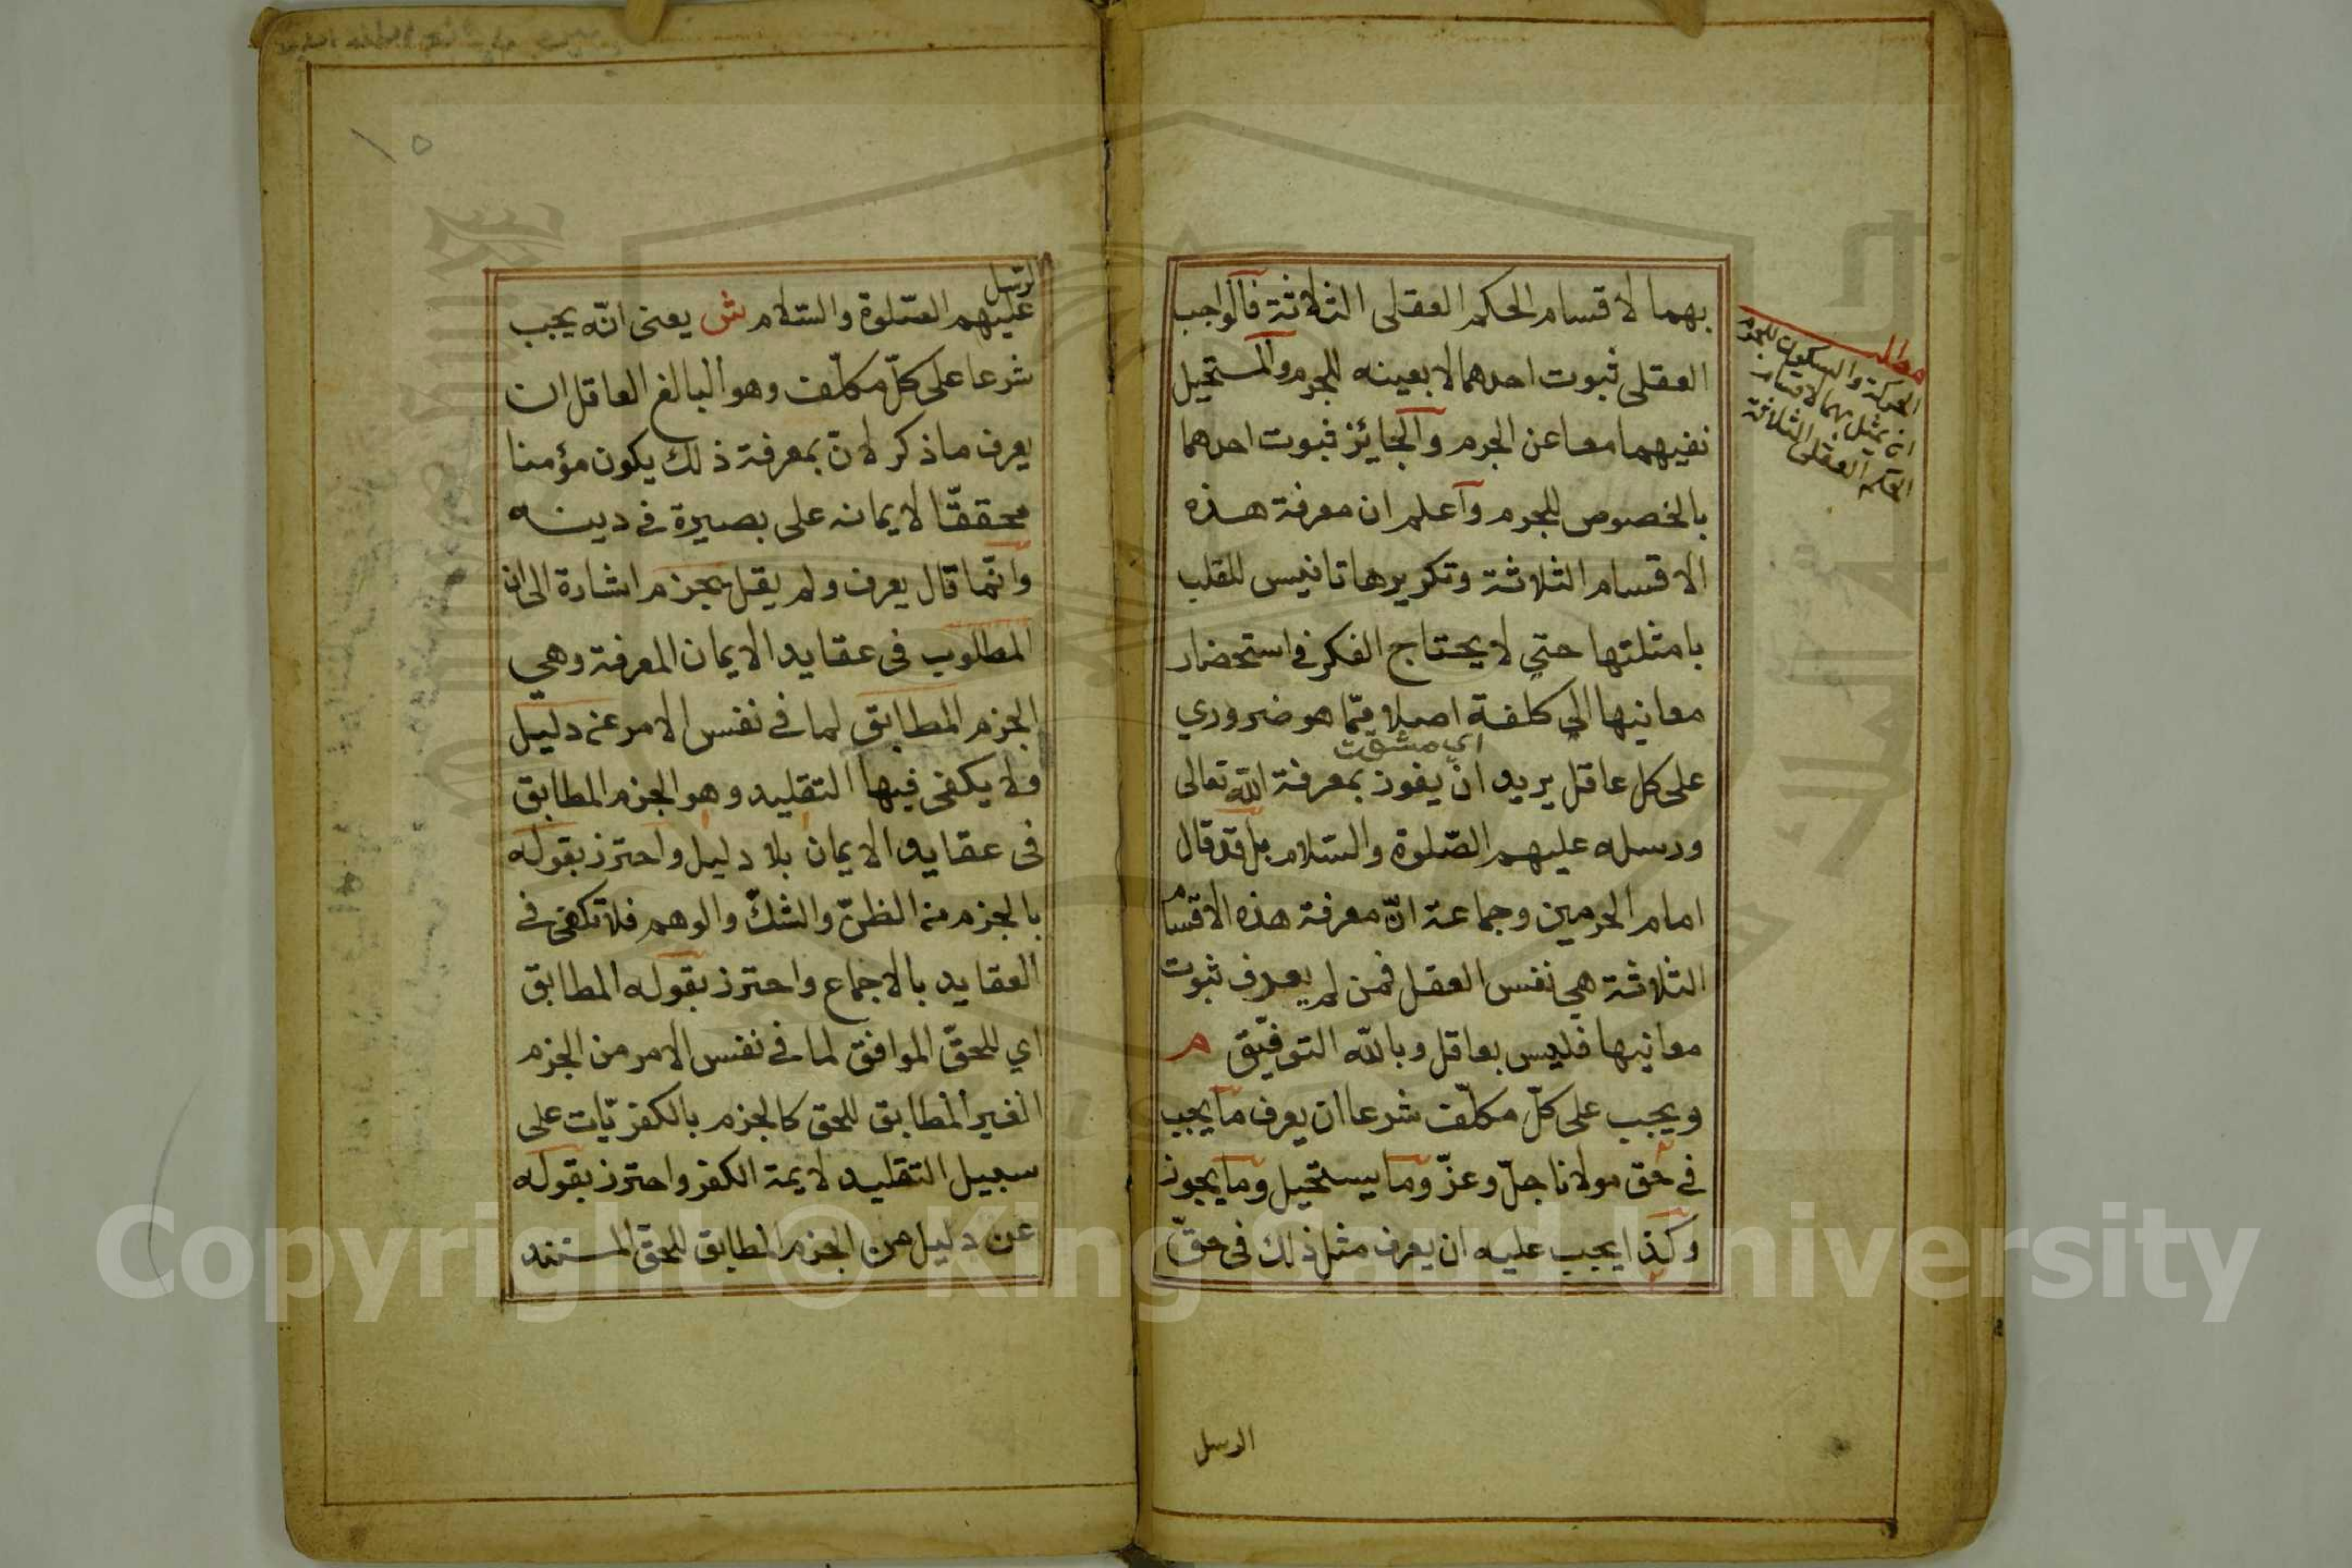 بهما لاقسام الحكم العقلى الثلاثة فالواجب
العقلى ثبوت احدهما لا بعينه للجرم والمستحيل
نفيهما معا عن الجرم والجايئز ثبوت احدهما
بالخصوص للجرم واعلم ان معرفة هذه
الاقسام الثلاثة وتكريرها تانيس للقلب
بامثلتها حتي لا يحتاج الفكر في استحضار
معانيها الى كلفة اصلا ممّا هو ضروري
اي مشقت
على كل عاقل يريد ان يفوز بمعرفة الله تعالى
ورسله عليهم الصّلوة والسّلام بل قد قال
امام الحرمين وجماعة انّ معرفة هذه الاقسام
الثلاثة هي نفس العقل فمن لم يعرف ثبوت
معانيها فليس بعاقل وبالله التوفيق م
ويجب على كلّ مكلّف شرعا ان يعرف ما يجب
في حق مولانا جلّ وعزّ وما يستحيل وما يجوز
وكذا يجب عليه ان يعرف مثل ذلك فى حقّ
الرسل
مطلب
الحركة والسكون للجرم
ان يمثل بهما لاقسام
الحكم العقلى الثلاثة
١٥
الرسل
عليهم الصّلوة والسّلام ش يعنى انّه يجب
شرعا على كلّ مكلّف وهو البالغ العاقل ان
يعرف ما ذكر لانّ بمعرفة ذلك يكون مؤمنا
محققّا لايمانه على بصيرة في دينه
وانّما قال يعرف ولم يقل يجزم اشارة الى ان
المطلوب فى عقايد الايمان المعرفة وهي
الجزم المطابق لما في نفس الامر عن دليل
ولا يكفى فيها التقليد وهو الجزم المطابق
فى عقايد الايمان بلا دليل واحترز بقوله
بالجزم من الظنّ والشكّ والوهم فلا تكفى في
العقايد بالاجماع واحترز بقوله المطابق
اي للحقّ الموافق لما في نفس الامر من الجزم
الغير المطابق للحق كالجزم بالكفريّات على
سبيل التقليد لايمة الكفر واحترز بقوله
عن دليل من الجزم المطابق للحق المستند
Copyright © King Saud University